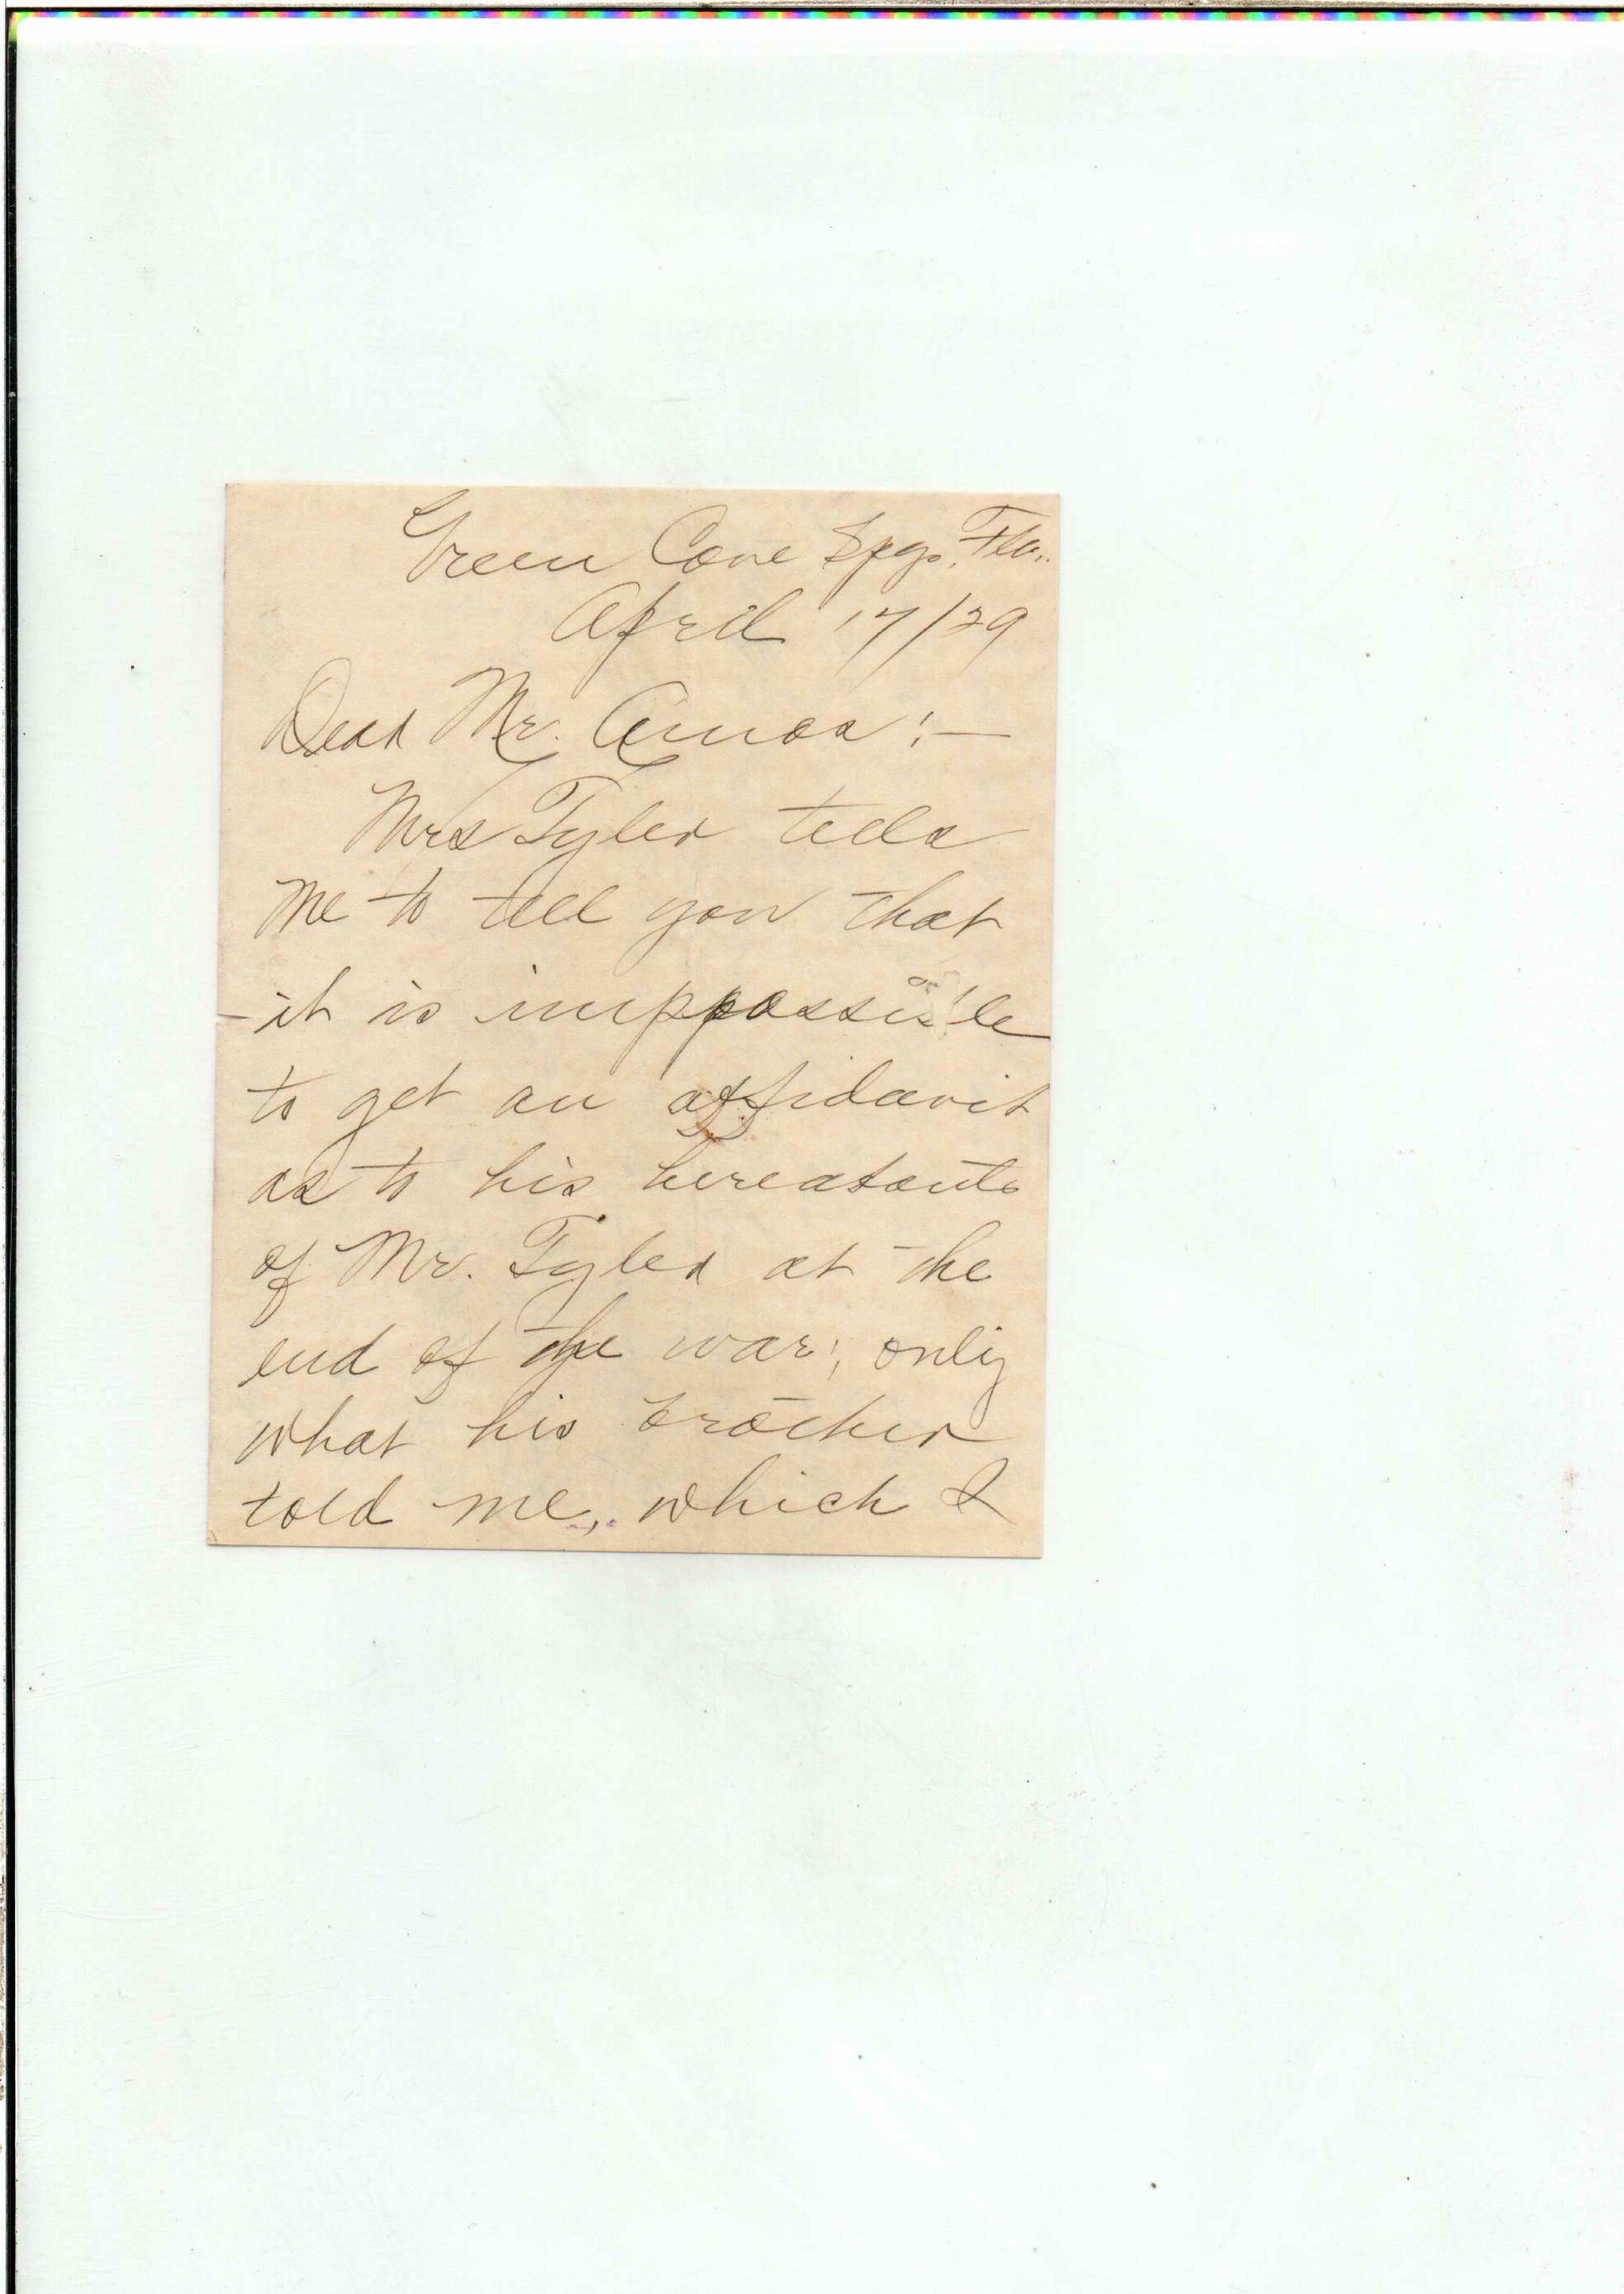 Green Cove Spgs, Fla.
April 17/29
Dear Mr. Amos:—
Mrs Tyler tells
me to tell you that
it is imppossible
to get an affidavit
as to his hereabouts
of Mr. Tyler at the
end of the war; only
what his brother
told me, which I